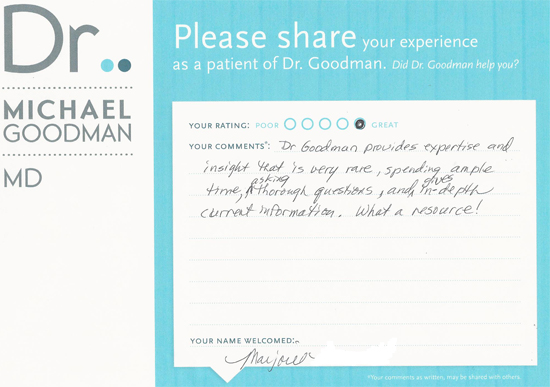 Dr..
MICHAEL
GOODMAN
MD
Please share your experience
as a patient of Dr. Goodman. Did Dr. Goodman help you?
YOUR RATING: POOR GREAT
YOUR COMMENTS*: Dr Goodman provides expertise and
insight that is very rare, spending ample
time, asking thorough questions, and gives in-depth
current information. What a resource!
YOUR NAME WELCOMED:
*Your comments as written, may be shared with others.